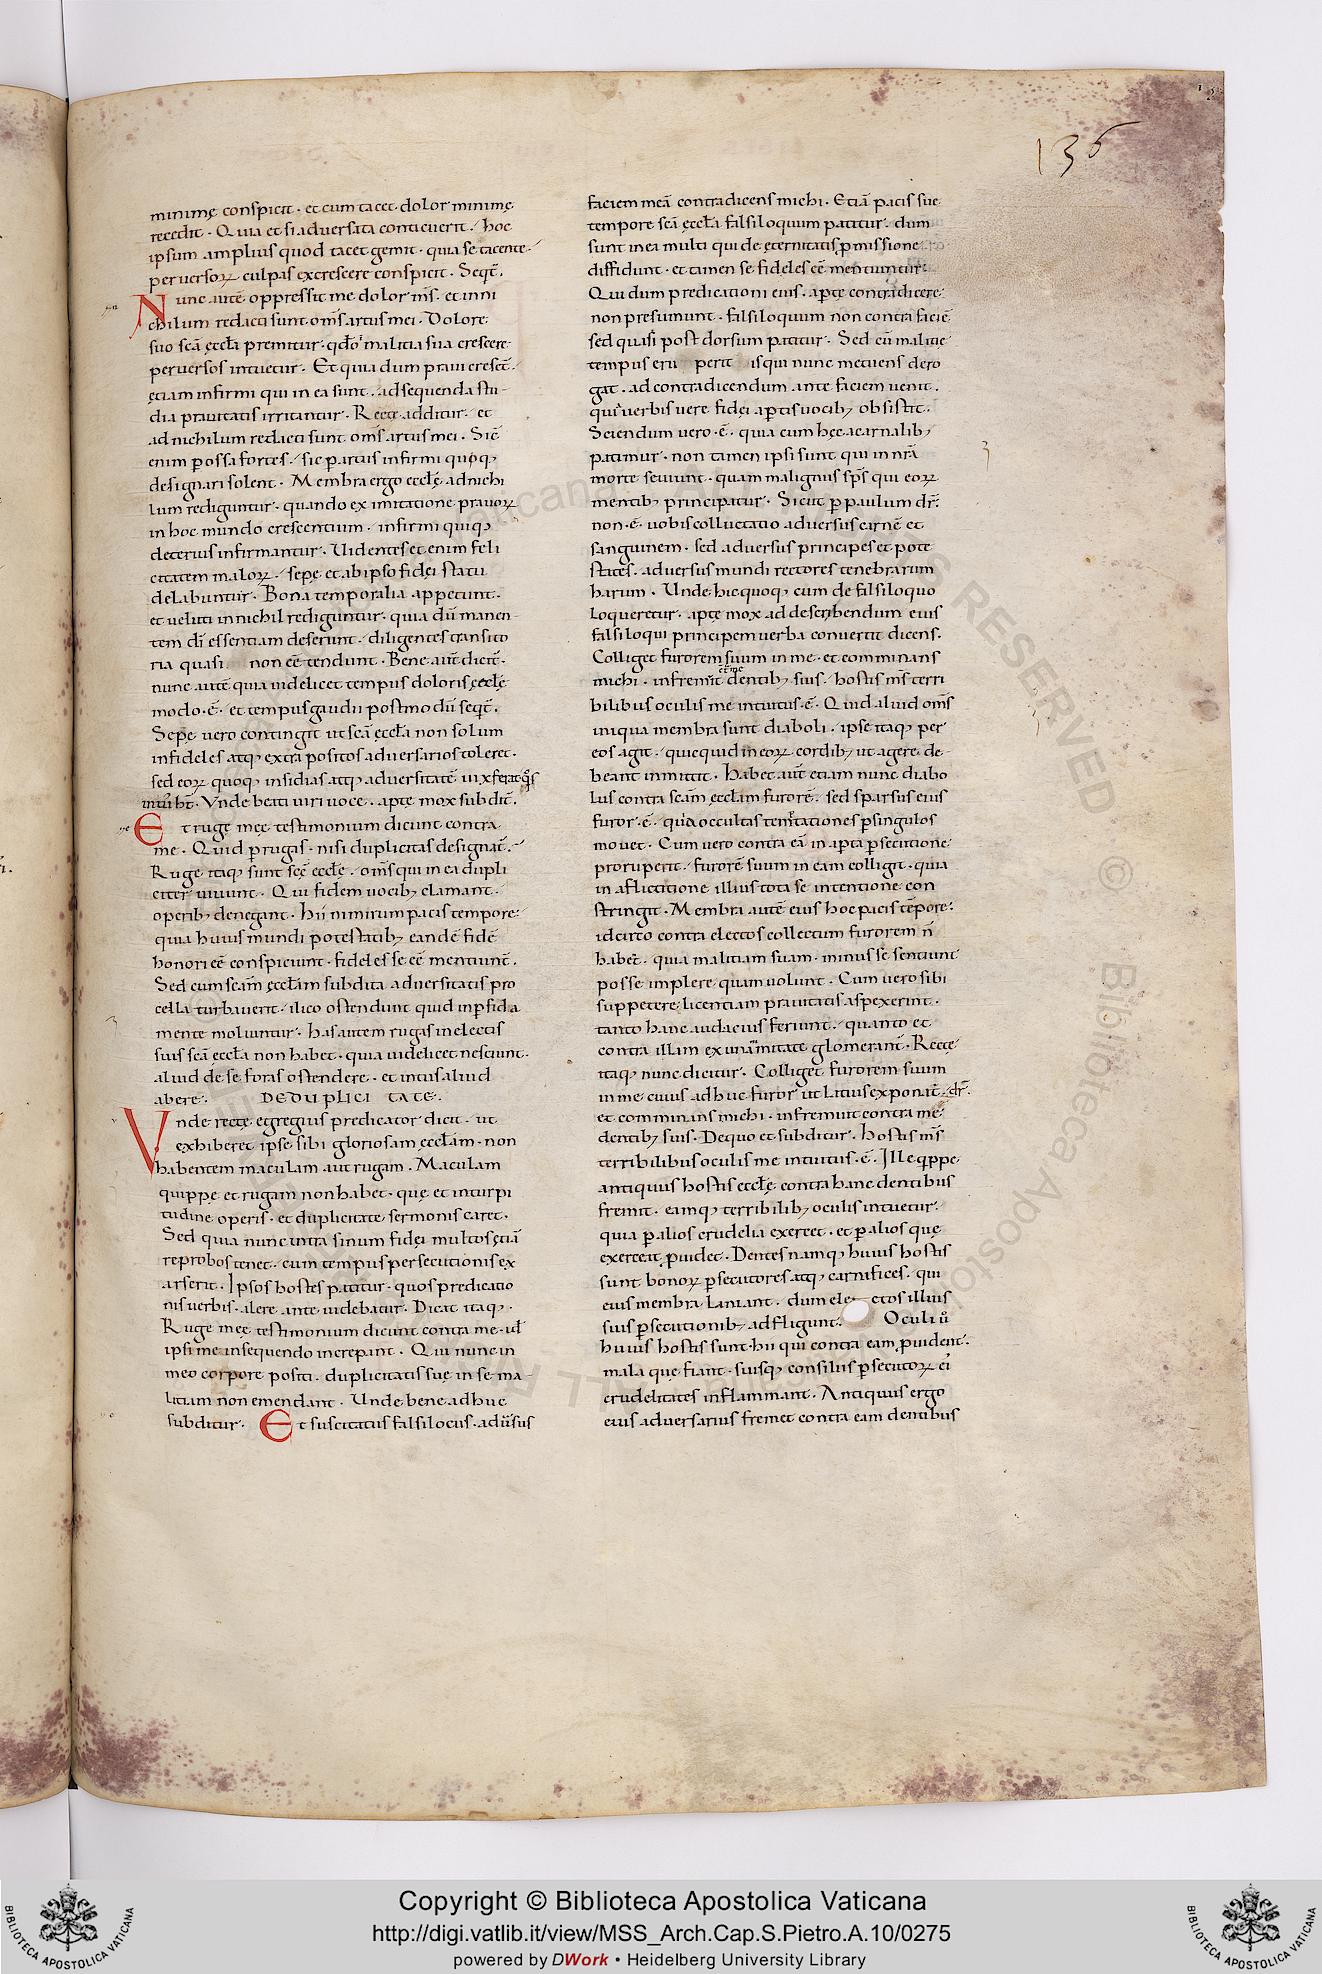 136
minimę conspicit · et cum tacet · dolor minimę
recedit · Quia et si adversata conticuerit · hoc
ipsum amplius quod tacet gemit · quia se tacente ·
perversoꝝ culpas excrescere conspicit · Seqt̄.
Nunc autē oppressit me dolor m̄s · et in ni
chilum redacti sunt om̄s artus mei · Dolore
suo sc̄a ęccƚa premitur · qđo malicia sua crescere
perversos intuetur · Et quia dum pravi cresct̄ ·
etiam infirmi qui in ea sunt · ad sequenda stu
dia pravitatis irritantur · Recte additur · et
ad nichilum redacti sunt om̄s artus mei · Sic̄
enim ꝑ ossa fortes · sic ꝑ artus infirmi quoqꝫ
designari solent · Membra ergo eccƚę ad nichi
lum rediguntur · quando ex imitatione pravoꝝ
in hoc mundo crescentium · infirmi quiqꝫ
deterius infirmantur · Videntes et enim feli
citatem maloꝝ · sepę et ab ipso fidęi statu
delabuntur · Bona temporalia appetunt ·
et veluti in nichil rediguntur · quia dū manen
tem dī essentiam deserunt · diligentes transito
ria quasi non eē tendunt · Bene aut̄ dicit̄ ·
nunc autē quia videlicet tempus doloris ęccƚę
modo · ē · et tempus gaudii postmodū seqt̄ ·
Sepę vero contingit ut sc̄a ęccƚa non solum
infideles atqꝫ extra positos adversarios toleret ·
sed eoꝝ quoqꝫ insidias atqꝫ adversitatē vix ferat qͦs
intu̅ ht̄ · Vnde beati viri voce · apte mox subdit̄ ·
Et rugę męę testimonium dicunt contra
me · Quid ꝑ rugas · nisi duplicitas designat̄ ·
Rugę itaqꝫ sunt sc̄ę eccƚę · om̄s qui in ea dupli
citer vivunt · Qui fidem vocibꝫ clamant ·
operibꝫ denegant · Hii nimirum pacis tempore
quia huius mundi potestatibꝫ eandē fidē
honori eē conspiciunt · fideles se eē mentiunt̄ ·
Sed cum sc̄am ęccƚam subdita adversitatis pro
cella turbaverit · ilico ostendunt quid in ꝑfida
mente moliuntur · has autem rugas in electis
suis sc̄a eccƚa non habet · quia videlicet nesciunt ·
aliud de se foras ostendere · et intus aliud
abere · DE DUPLICI TATE ·
Vnde recte egregius predicator dicit · ut
exhiberet ipse sibi gloriosam eccƚam · non
habentem maculam aut rugam · Maculam
quippę et rugam non habet · quę et in turpi
tudine operis · et duplicitate sermonis caret ·
Sed quia nunc intra sinum fidęi multos ętiā
reprobos tenet · cum tempus persecutionis ex
arserit · Ipsos hostes patitur · quos predicatio
nis verbis · alere ante videbatur · Dicat itaqꝫ ·
Rugę męę testimonium dicunt contra me · iđ
ipsi me insequendo increpant · Qui nunc in
meo corpore positi · duplicitatis suę in se ma
litiam non emendant · Vnde bene adhuc
subditur · Et suscitatus falsilocus · adūsus
faciem meā contradicens michi · Etiā pacis sue
tempore sc̄a ęccƚa falsiloquum patitur · dum
sunt in ea multi qui de ęternitatis ꝑmissione
diffidunt · et tamen se fideles eē mentiuntur ·
Qui dum predicationi eius · aꝑte contradicere
non presumunt · falsiloquum non contra faciē
sed quasi post dorsum patitur · Sed cū malicie
tempus eru perit is qui nunc metuens dero
gat · ad contradicendum ante faciem venit ·
qui verbis verę fidęi aꝑtis vocibꝫ obsistit ·
Sciendum vero · ē · quia cum hęc a carnalibꝫ
patimur · non tamen ipsi sunt qui in nr̄a
morte seviunt · quam malignus sp̄s qui eoꝝ
mentibꝫ principatur · Sicut ꝑ paulum dr̄ ·
non · ē · vobis colluctatio adversus carnē et
sanguinem · sed adversus principes et pote
states · adversus mundi rectores tenebrarum
harum · Unde hic quoqꝫ cum de falsiloquo
loqueretur · apte mox ad describendum eius
falsiloqui principem verba convertit dicens ·
Colliget furorem suum in me · et comminans
michi · infremuit dentibꝫ suis · hostis m̄s terri
bilibus oculis me intuitus · ē · Quid aliud om̄s
iniqua membra sunt diaboli · ipse itaqꝫ per
eos agit · quicquid in eoꝝ cordibꝫ ut agere de
beant inmittit · Habet aut̄ etiam nunc diabo
lus contra sc̄am ęccƚam furorē · sed sparsus eius
furor · ē · quia occultas temptationes ꝑ singulos
movet · Cum vero contra eā in aꝑta ꝑsecutione
proruperit · furorē suum in eam colligit · quia
in afflictione illius tota se intentione con
stringit · Membra autē eius hoc pacis tēpore
idcirco contra electos collectum furorem n̄
habet · quia malitiam suam · minus se sentiunt
posse implere quam volunt · Cum vero sibi
suppetere licentiam pravitatis aspexerint ·
tanto hanc audacius feriunt · quanto et
contra illam ex unanimitate glomerant̄ · Recte
itaqꝫ nunc dicitur · Colliget furorem suum
in me · cuius adhuc furor ut latius exponat̄ · dr̄ ·
et comminans michi · infremuit contra me
dentibꝫ suis · De quo et subditur · Hostis m̄s
terribilibus oculis me intuitus · ē · Ille q̄ppe
antiquus hostis eccƚę contra hanc dentibus
fremit · eamqꝫ terribilibꝫ oculis intuetur ·
quia ꝑ alios crudelia exercet · et ꝑ alios quę
exerceat ꝓvidet · Dentes namqꝫ huius hostis
sunt bonoꝝ ꝑsecutores atqꝫ carnifices · qui
eius membra laniant · dum ele ctos illius
suis ꝑsecutionibꝫ adfligunt · Oculi ū
huius hostis sunt · hii qui contra eam ꝓvident ·
mala quę fiant · suisqꝫ consiliis ꝑsecutoꝝ ei
crudelitates inflammant · Antiquus ergo
eius adversarius fremet contra eam dentibus
Copyright © Biblioteca Apostolica Vaticana
http://digi.vatlib.it/view/MSS_Arch.Cap.S.Pietro.A.10/0275
powered by DWork • Heidelberg University Library
BIBLIOTECA APOSTOLICA VATICANA
BIBLIOTECA APOSTOLICA VATICANA